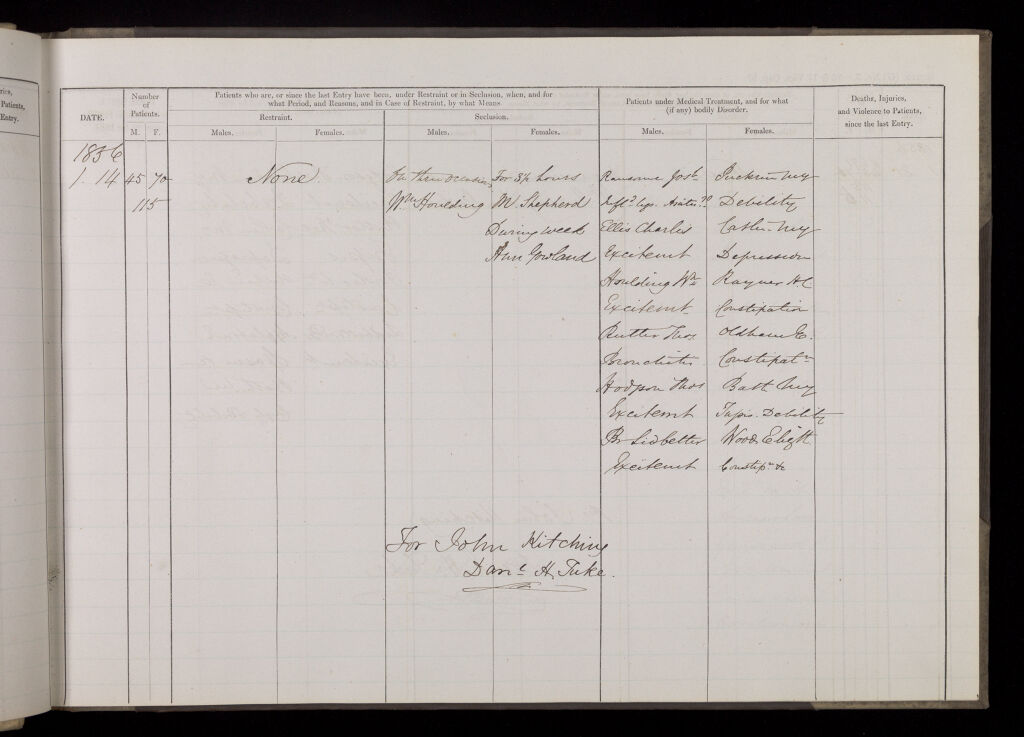 ries,
Patients,
Entry.
DATE.
Number
of
Patients.
M. F.
Patients who are, or since the last Entry have been, under Restraint or in Seclusion, when, and for
what Period, and Reasons, and in Case of Restraint, by what Means.
Restraint.
Seclusion.
Males.
Females.
Males.
Females.
Patients under Medical Treatment, and for what
(if any) bodily Disorder.
Males.
Females.
Deaths, Injuries,
and Violence to Patients,
since the last Entry.
1856
1. 14
45 70
115
None.
On three occasions
Wm Houlding
For 8½ hours
M Shepherd
During week
Ann Gowland
Ransome Josh
Ellis Charles
Excitemt
Houlding Wm
Excitemt
Rutter Thos
Bronchitis
Hodgson Thos
Excitemt
Br Lidbetter
Excitemt
My
Debility
My
Depression
Rayner H C
Constipation
Oldham E.
Constipatn
Batt My
Debility
Wood Elizth
Constipn &c
For John Kitching
Danl H. Tuke.